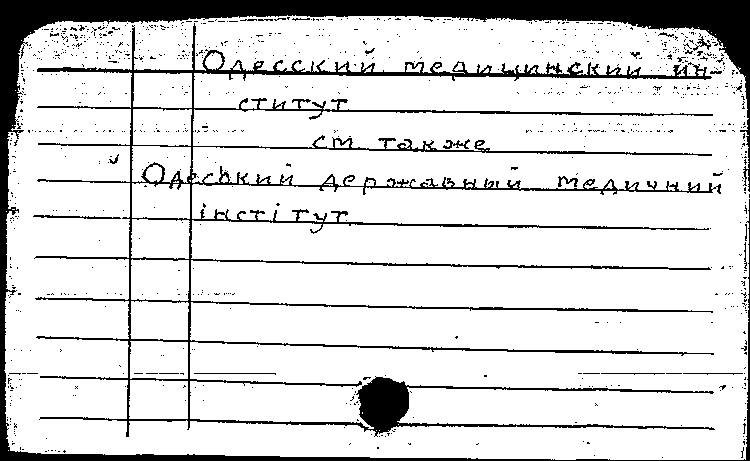 Одесский медицинский ин-
ститут
см также
Одеський державный медичний
інстітут